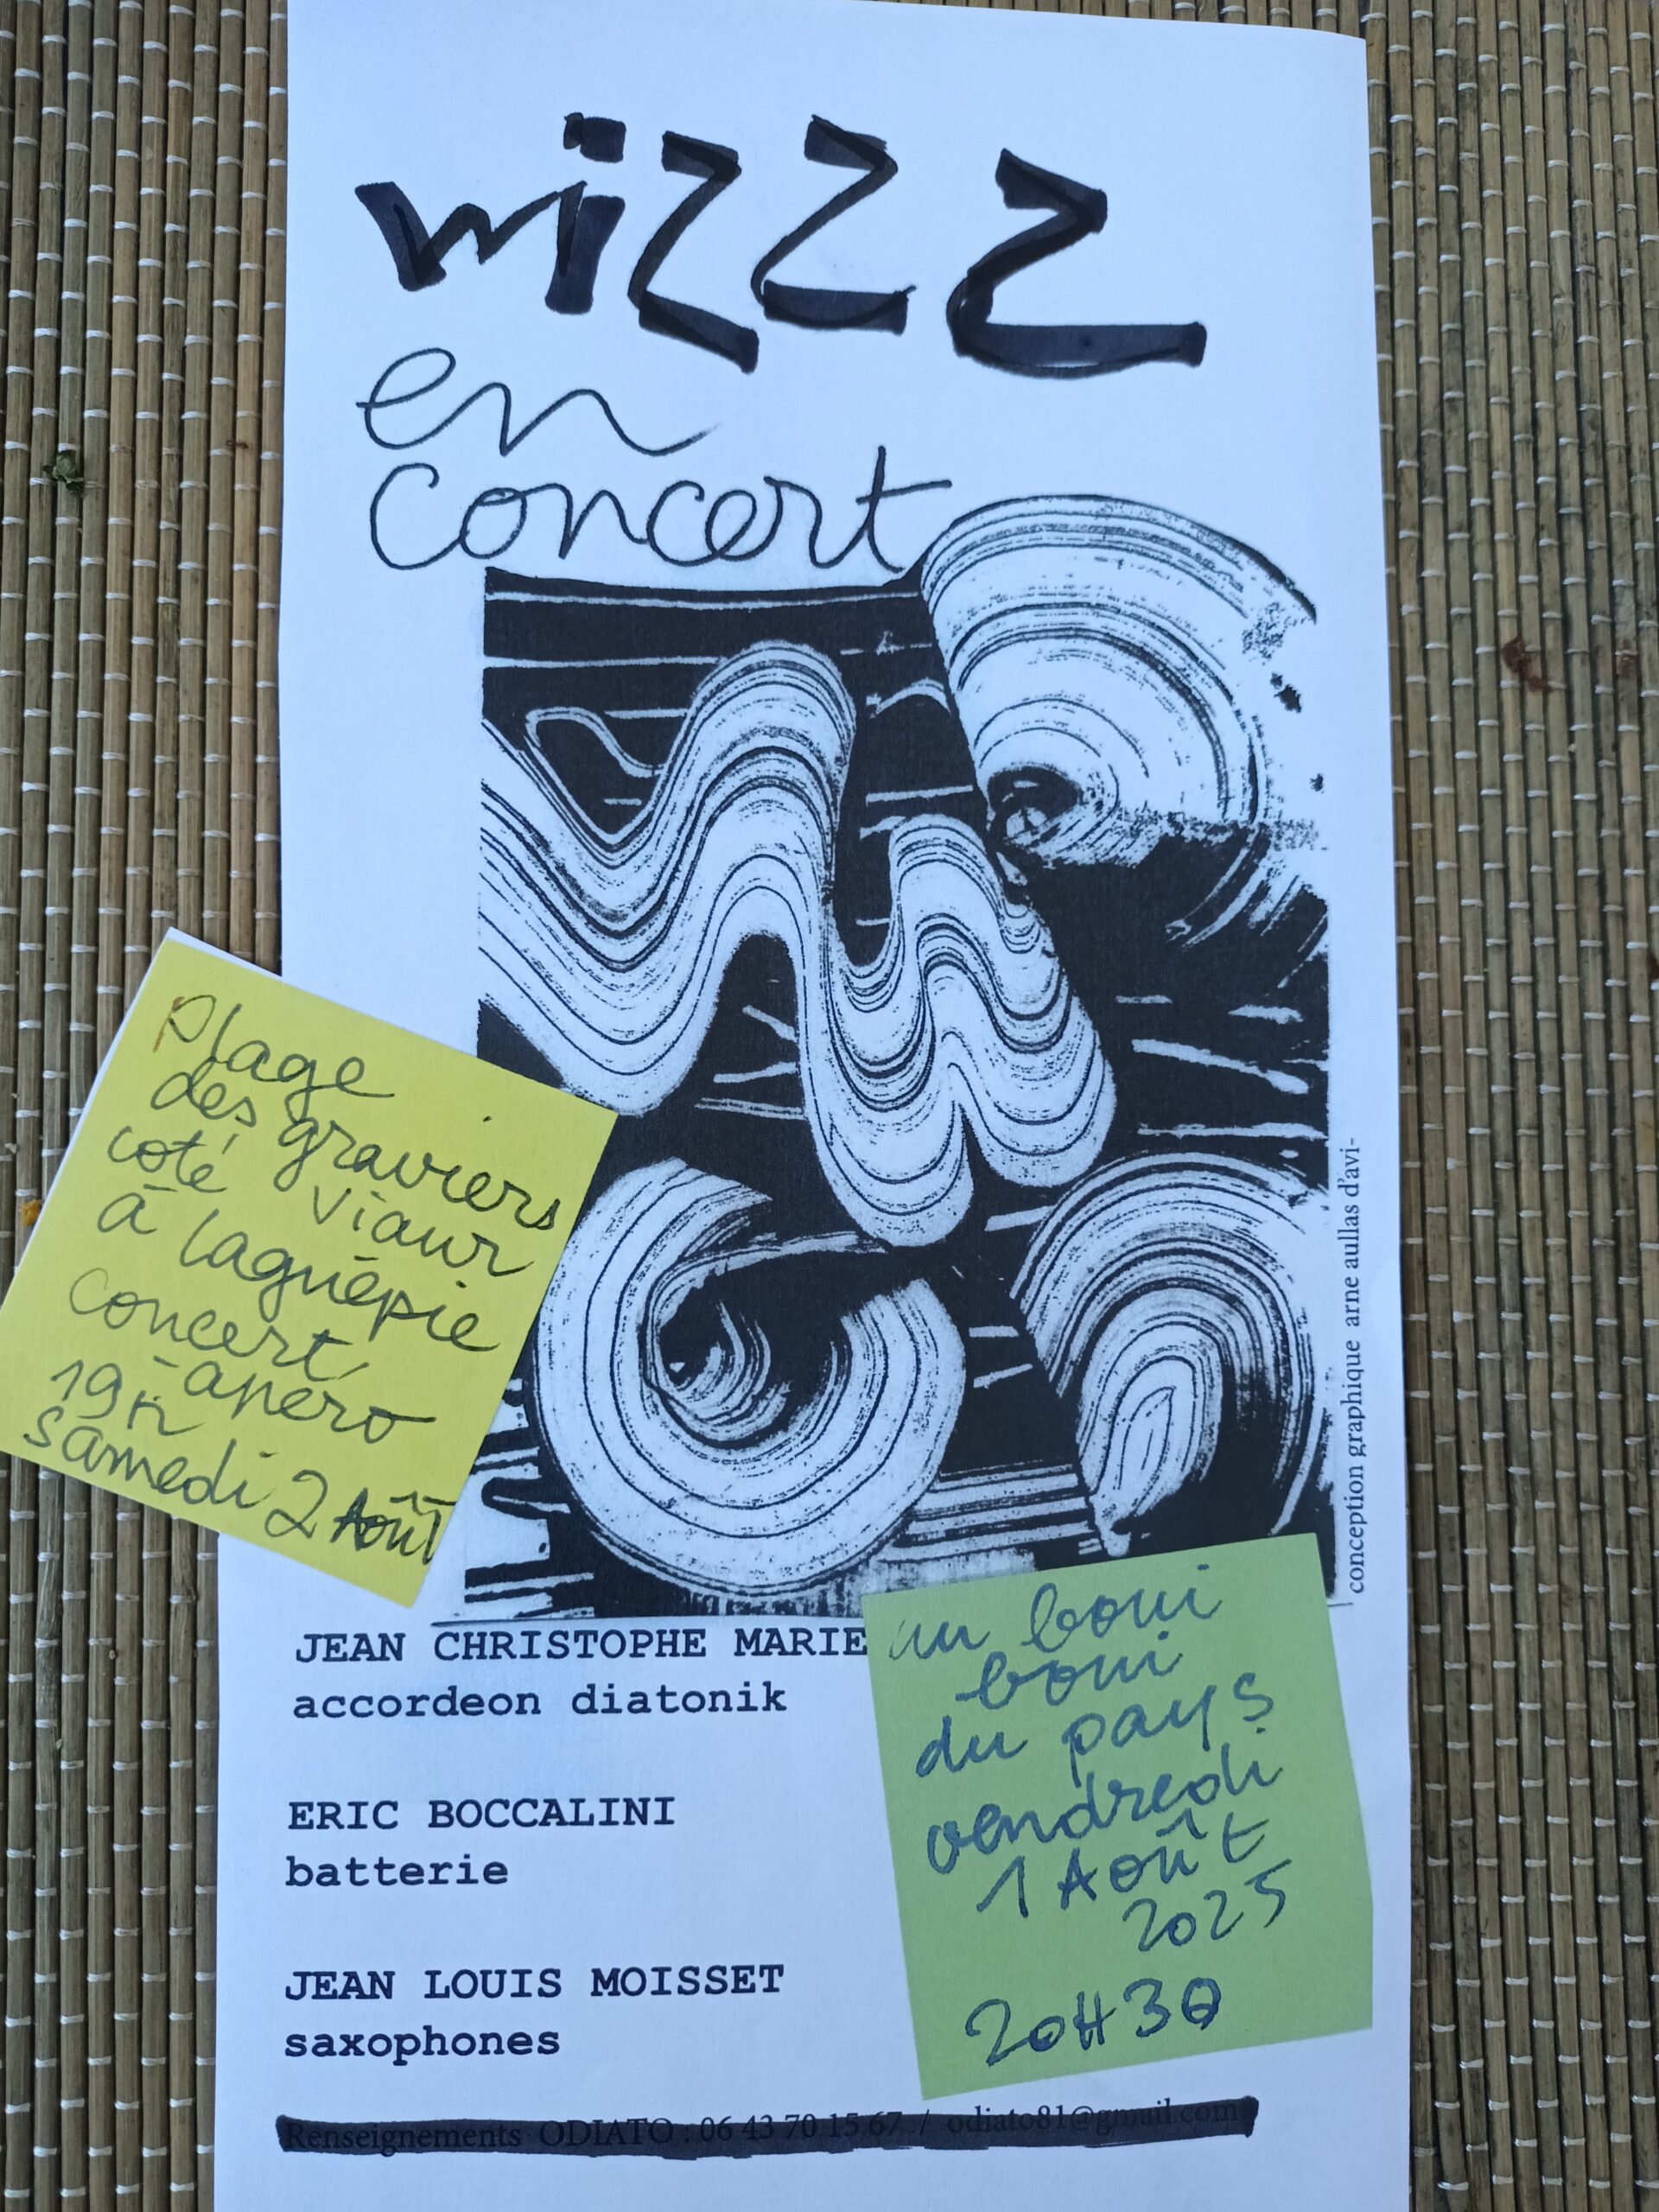 wizzz
en
concert
Plage
des graviers
coté Viaur
à laguépie
concert
-apéro
19h
samedi 2 Août
conception graphique arne aullas d'avi-
JEAN CHRISTOPHE MARIE
accordeon diatonik
ERIC BOCCALINI
batterie
JEAN LOUIS MOISSET
saxophones
un boui
boui
du pays
vendredi
1 Août
2025
20H30
Renseignements ODIATO : 06 43 70 15 67 / odiato81@gmail.com